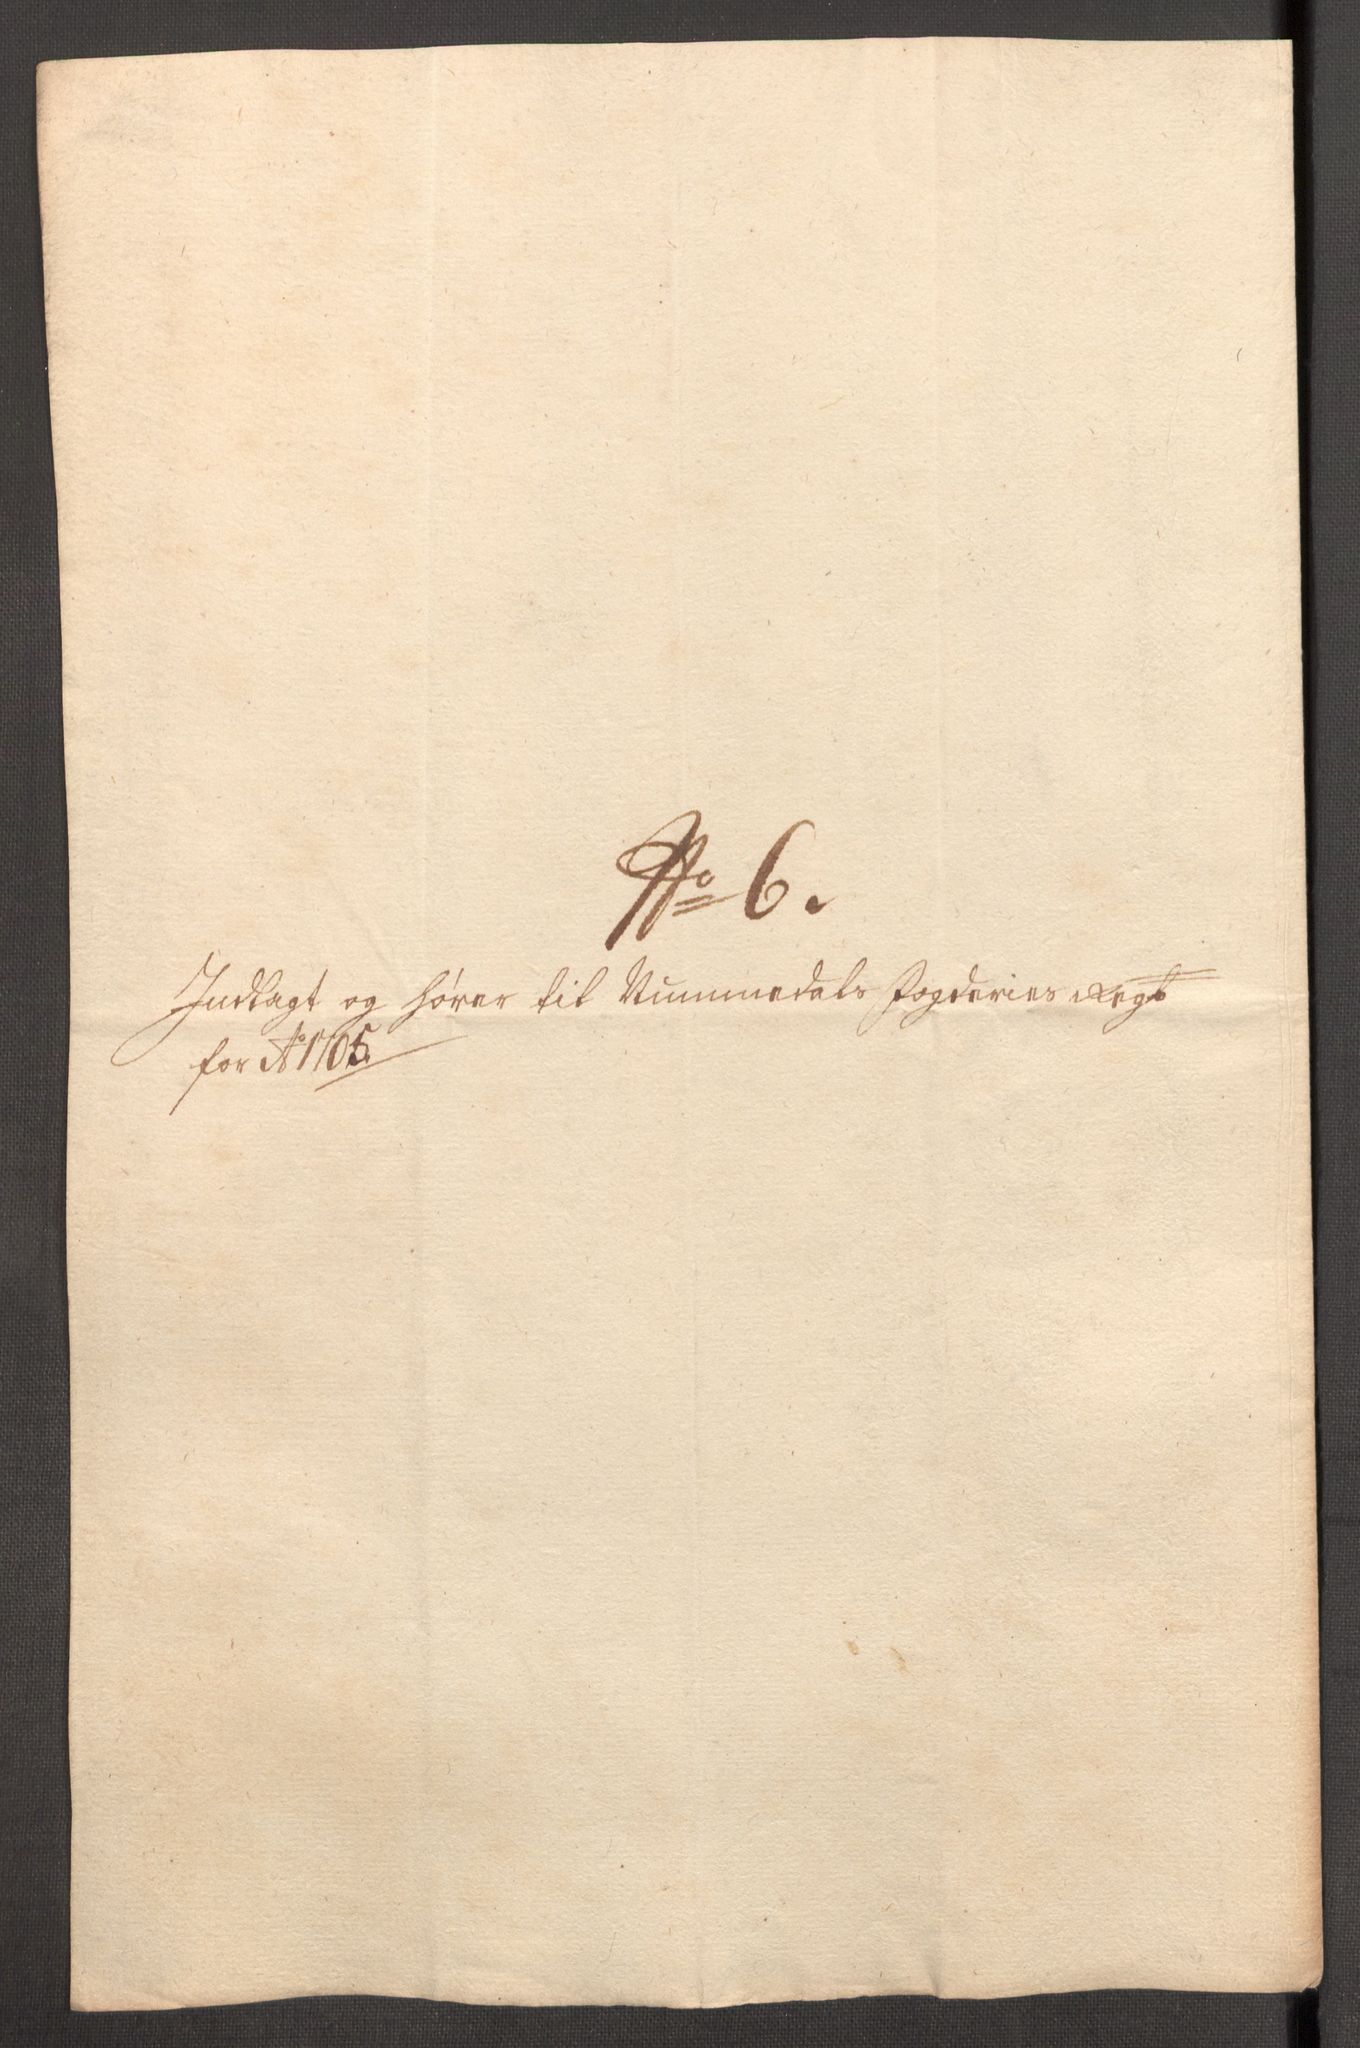 No 6.
Indlagt og hører til Nummedals fogderies Regb
for Ao 1705.